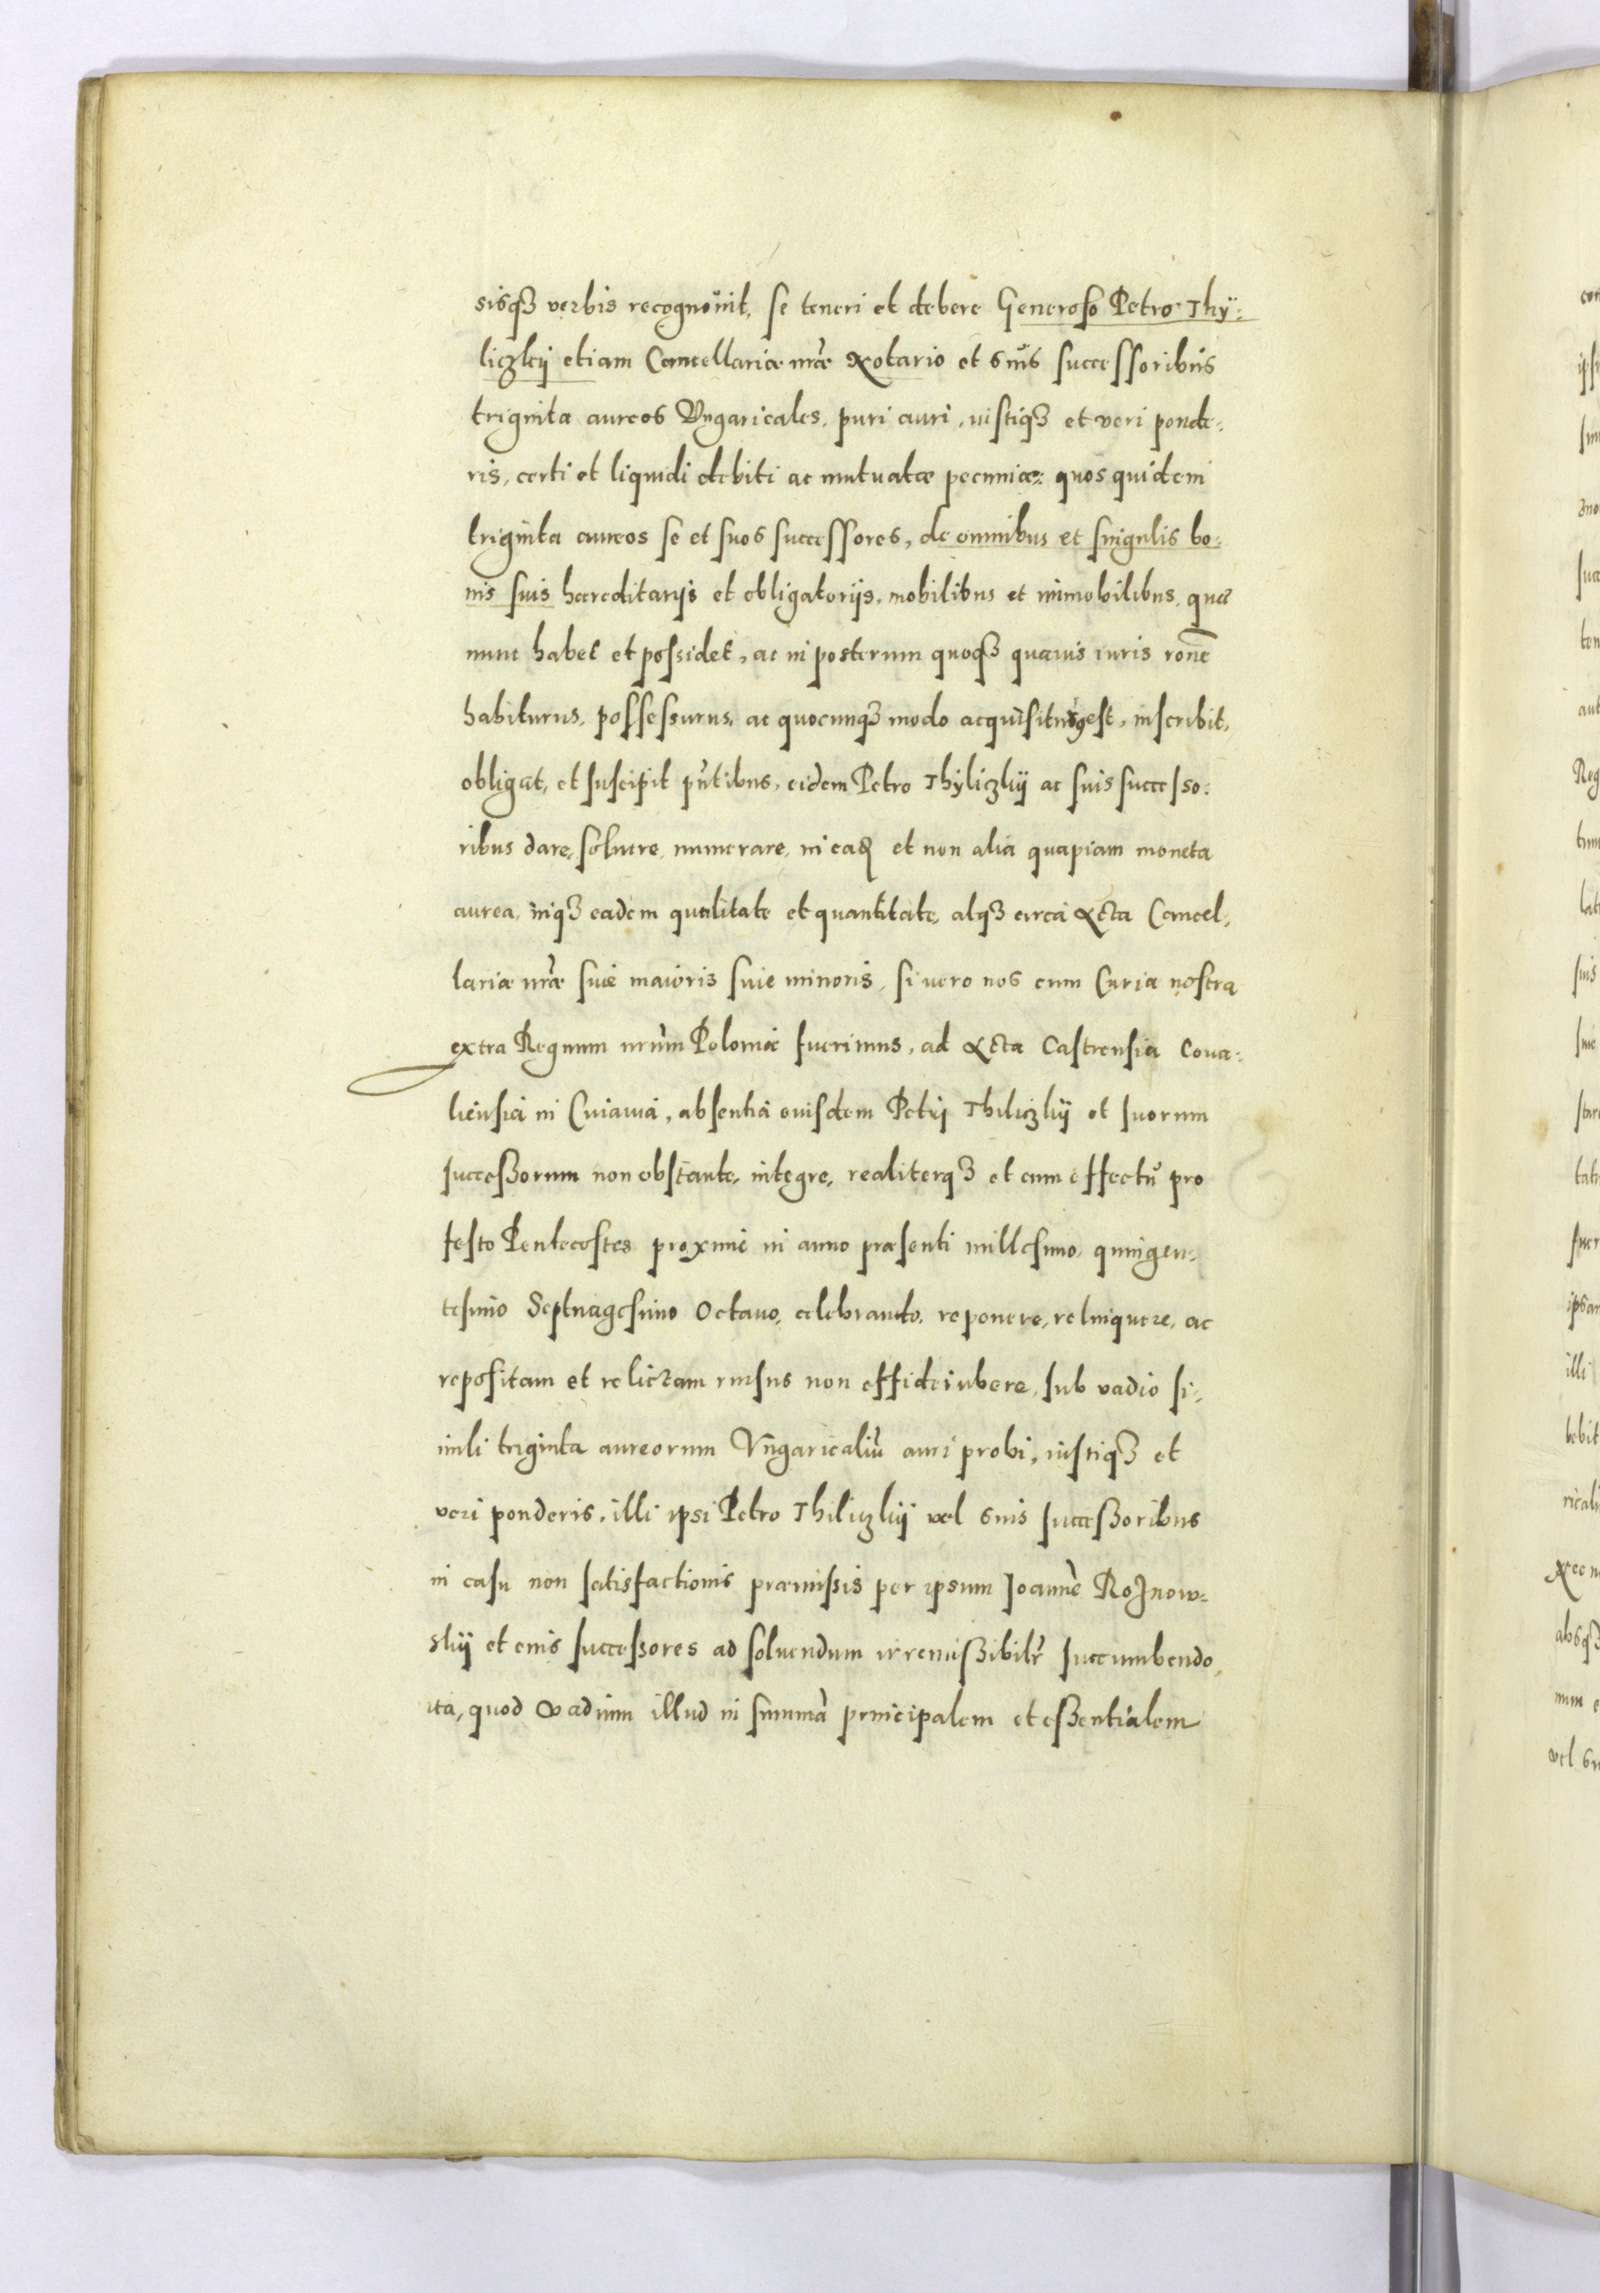 sisq3 verbis recognovit, se teneri et debere Generoso Petro Thÿ:
liczkÿ etiam Cancellariæ nr̃æ Notario et suis successoribus
triginta aureos Vngaricales, puri auri, iustiq3 et veri ponde:
ris, certi et liquidi debiti ac mutuatæ pecuniæ: quos quidem
triginta aureos se et suos successores, de omnibus et singulis bo:
nis suis hæreditarijs et obligatorijs, mobilibus et immobilibus, quæ
nunc habet et possidet, ac in posterum quoq3 quævis iuris rone
habiturus, possessurus, ac quocunq3 modo acquisiturus est, inscribit,
obligat, et suscipit pñtibus, eidem Petro Thÿliczkÿ ac suis successo:
ribus dare, solvere, numerare, in ead et non alia quapiam moneta
aurea, inq3 eadem qualitate et quantitate, atq3 circa Acta Cancel,
lariæ nr̃æ sive maioris sive minoris, si vero nos cum Curia nostra
extra Regnum nrũm Poloniæ fuerimus, ad Acta Castrensia Cova:
liensia in Cuiavia, absentia eiusdem Petrj Thiliczkÿ et suorum
successorum non obstante, integre, realiterq3 et cum effectu pro
festo Pentecostes proxime in anno præsenti millesimo quingen:
tesimo Septuagesimo Octavo, celebrando, reponere, relinquere, ac
repositam et relictam rursus non effideiubere, sub vadio si:
mili triginta aureorum Vngaricaliũ auri probi, iustiq3 et
veri ponderis, illi ipsi Petro Thiliczkÿ vel suis successoribus
in casu non satisfactionis præmissis per ipsum Joannẽ Roznow:
skÿ et eius successores ad solvendum irremissibilr̃ succumbendo,
ita, quod Vadium illud in summã principalem et essentialem